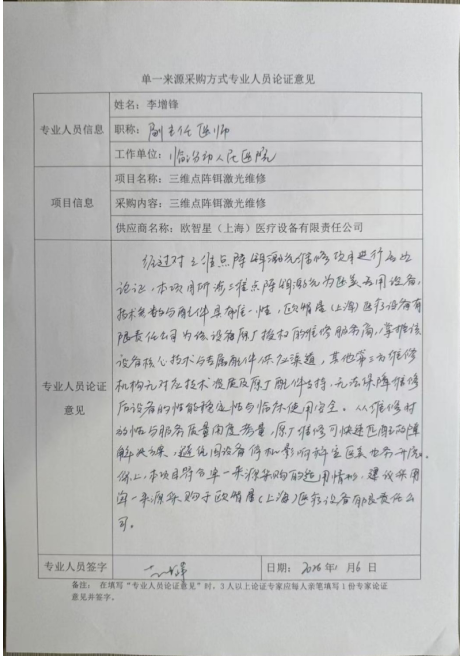 单一来源采购方式专业人员论证意见
专业人员信息
姓名：李增锋
职称：副主任医师
工作单位：临汾市人民医院
项目信息
项目名称：三维点阵铒激光维修
采购内容：三维点阵铒激光维修
供应商名称：欧智星（上海）医疗设备有限责任公司
专业人员论证
意见
经过对三维点阵铒激光维修项目进行
论证，本项目所涉三维点阵铒激光为医美专用设备，
技术参数与配件具有唯一性，欧智星（上海）医疗设备有
限责任公司为该设备原厂授权的维修服务商，掌握该
设备核心技术与专属配件供应渠道，其他第三方维修
机构无对应技术 及原厂配件支持，无法保障维修
后设备的性能稳定性与临床使用安全。从维修时
效性与服务质量角度考量，原厂维修可快速匹配故障
解决方案，避免因设备停机影响科室医美业务开展。
综上，本项目符合单一来源采购的适用情形，建议采用
单一来源采购于欧智星（上海）医疗设备有限责任公
司。
专业人员签字
日期：2026年 月6日
备注： 在填写“专业人员论证意见”时，3人以上论证专家应每人亲笔填写1份专家论证
意见并签字。